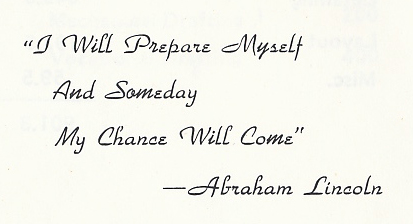 "I Will Prepare Myself
And Someday
My Chance Will Come"
—Abraham Lincoln